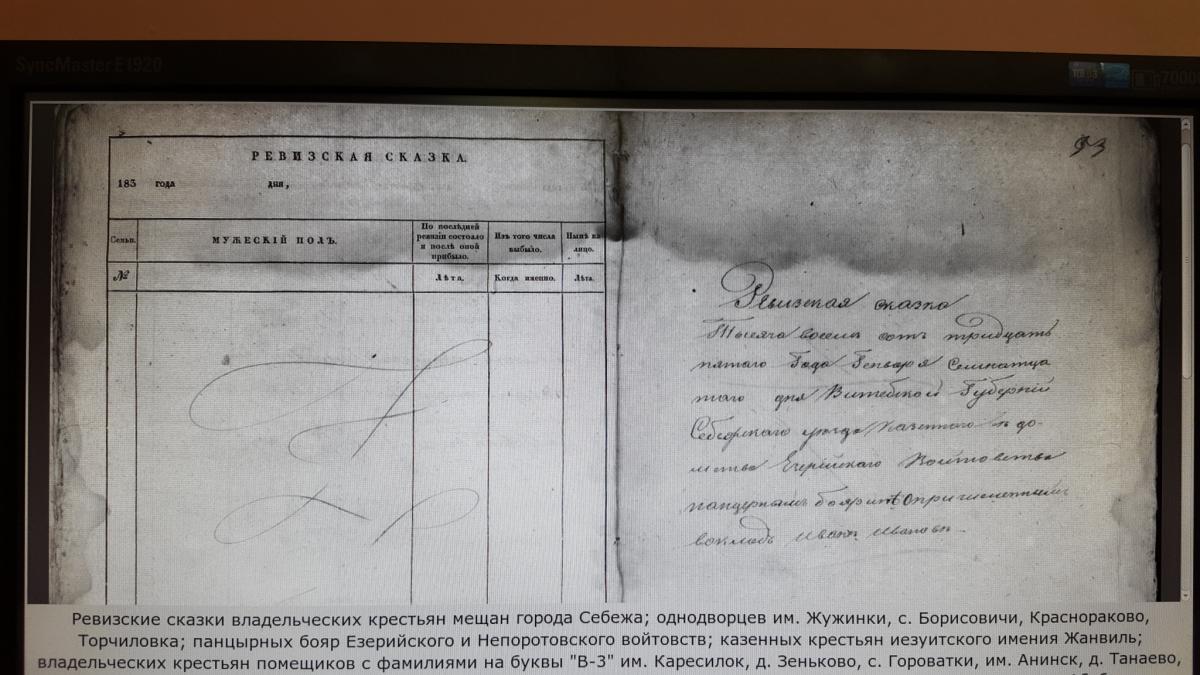 SyncMaster E1920
7000
РЕВИЗСКАЯ СКАЗКА.
183 года дня,
Семьи.
МУЖЕСКІЙ ПОЛЪ.
По послѣдней ревизіи состояло и послѣ оной прибыло.
Изъ того числа выбыло.
Нынѣ на лицо.
№
Лѣта.
Когда именно.
Лѣта.
93
Ревизская сказка
Тысяча восемь сотъ тридцать
пятаго Года Генваря Семнатца
таго дня Витебской Губерніи
Себежскаго уезда Казеннаго
Езерійскаго Войтовства
панцернымъ
вокладъ Иванъ Ивановъ
Ревизские сказки владельческих крестьян мещан города Себежа; однодворцев им. Жужинки, с. Борисовичи, Краснораково,
Торчиловка; панцырных бояр Езерийского и Непоротовского войтовств; казенных крестьян иезуитского имения Жанвиль;
владельческих крестьян помещиков с фамилиями на буквы "В-З" им. Каресилок, д. Зеньково, с. Гороватки, им. Анинск, д. Танаево,